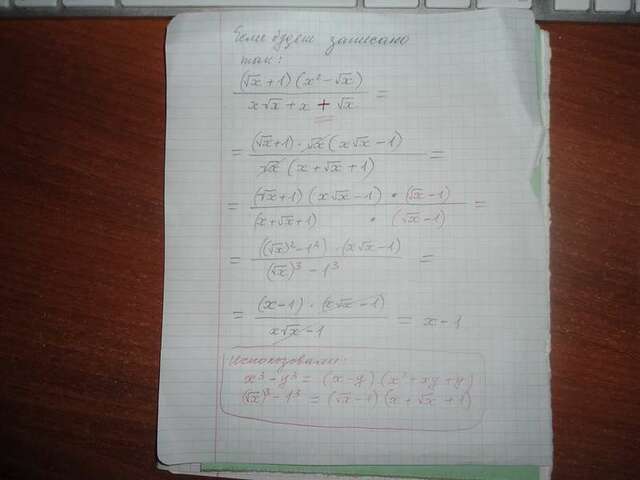 Если будет записано
так:
(√x + 1) (x² − √x) / (x√x + x + √x) =
= (√x+1) · √x (x√x − 1) / (√x (x + √x + 1)) =
= (√x+1) (x√x − 1) · (√x − 1) / ((x + √x + 1) · (√x − 1)) =
= ((√x)² − 1²) · (x√x − 1) / ((√x)³ − 1³) =
= (x − 1) · (x√x − 1) / (x√x − 1) = x − 1
Использовали:
x³ − y³ = (x − y) (x² + xy + y)
(√x)³ − 1³ = (√x − 1) (x + √x + 1)